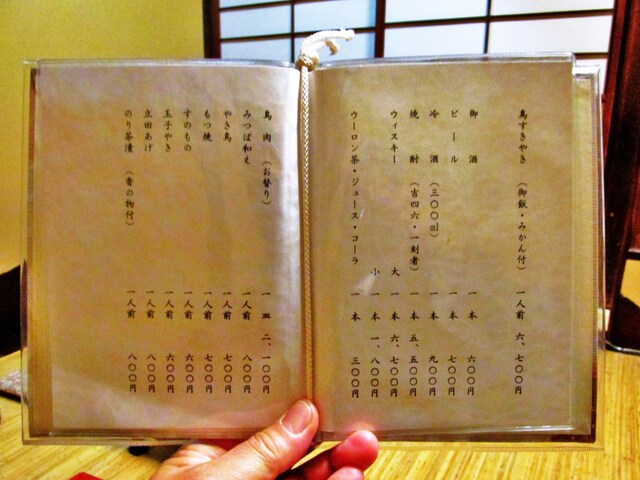 鳥すきやき（御飯・みかん付）　一人前　六、七〇〇円
御酒　一本　六〇〇円
ビール　一本　七〇〇円
冷酒（三〇〇ml）　一本　九〇〇円
焼酎（吉四六・一刻者）　一本　五、五〇〇円
ウィスキー　大　一本　六、七〇〇円
小　一本　一、八〇〇円
ウーロン茶・ジュース・コーラ　一本　三〇〇円
鳥肉（お替り）　一皿　二、一〇〇円
みつば和え　一人前　八〇〇円
やき鳥　一人前　七〇〇円
もつ焼　一人前　七〇〇円
すのもの　一人前　六〇〇円
玉子やき　一人前　六〇〇円
立田あげ　一人前　八〇〇円
のり茶漬（香の物付）　一人前　八〇〇円